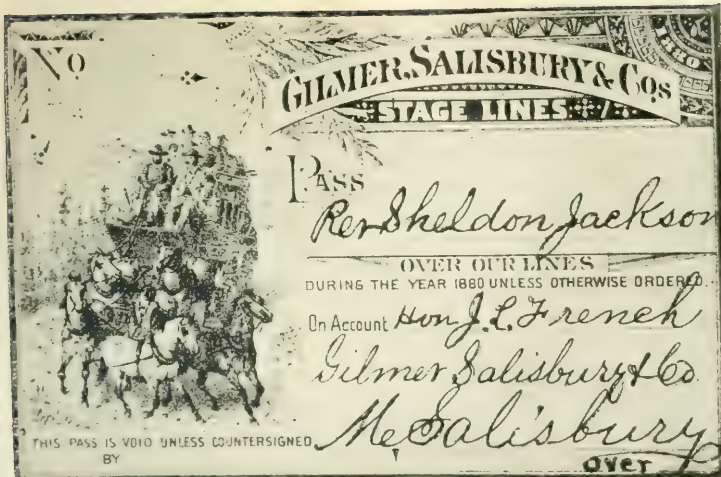 No
1880
GILMER, SALISBURY & Cos
STAGE LINES
PASS
Rev Sheldon Jackson
OVER OUR LINES
DURING THE YEAR 1880 UNLESS OTHERWISE ORDERED.
On Account Hon J. L. French
Gilmer Salisbury & Co
M Salisbury
THIS PASS IS VOID UNLESS COUNTERSIGNED
BY
over